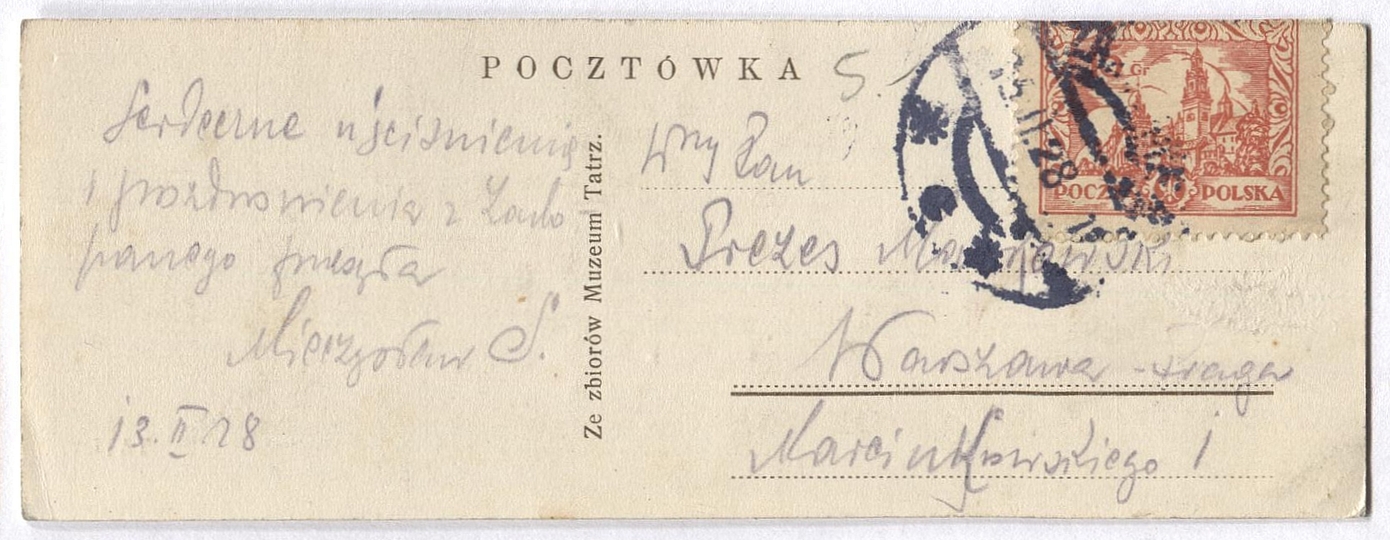 POCZTÓWKA
5.
Serdeczne uściśnienie
i pozdrowienia z Zako-
panego przesyła
Mieczysław S.
13.II 28
Ze zbiorów Muzeum Tatrz.
Wny Pan
Prezes
Warszawa - Praga
Marcinkowskiego 1
13.II.28
POCZTA POLSKA